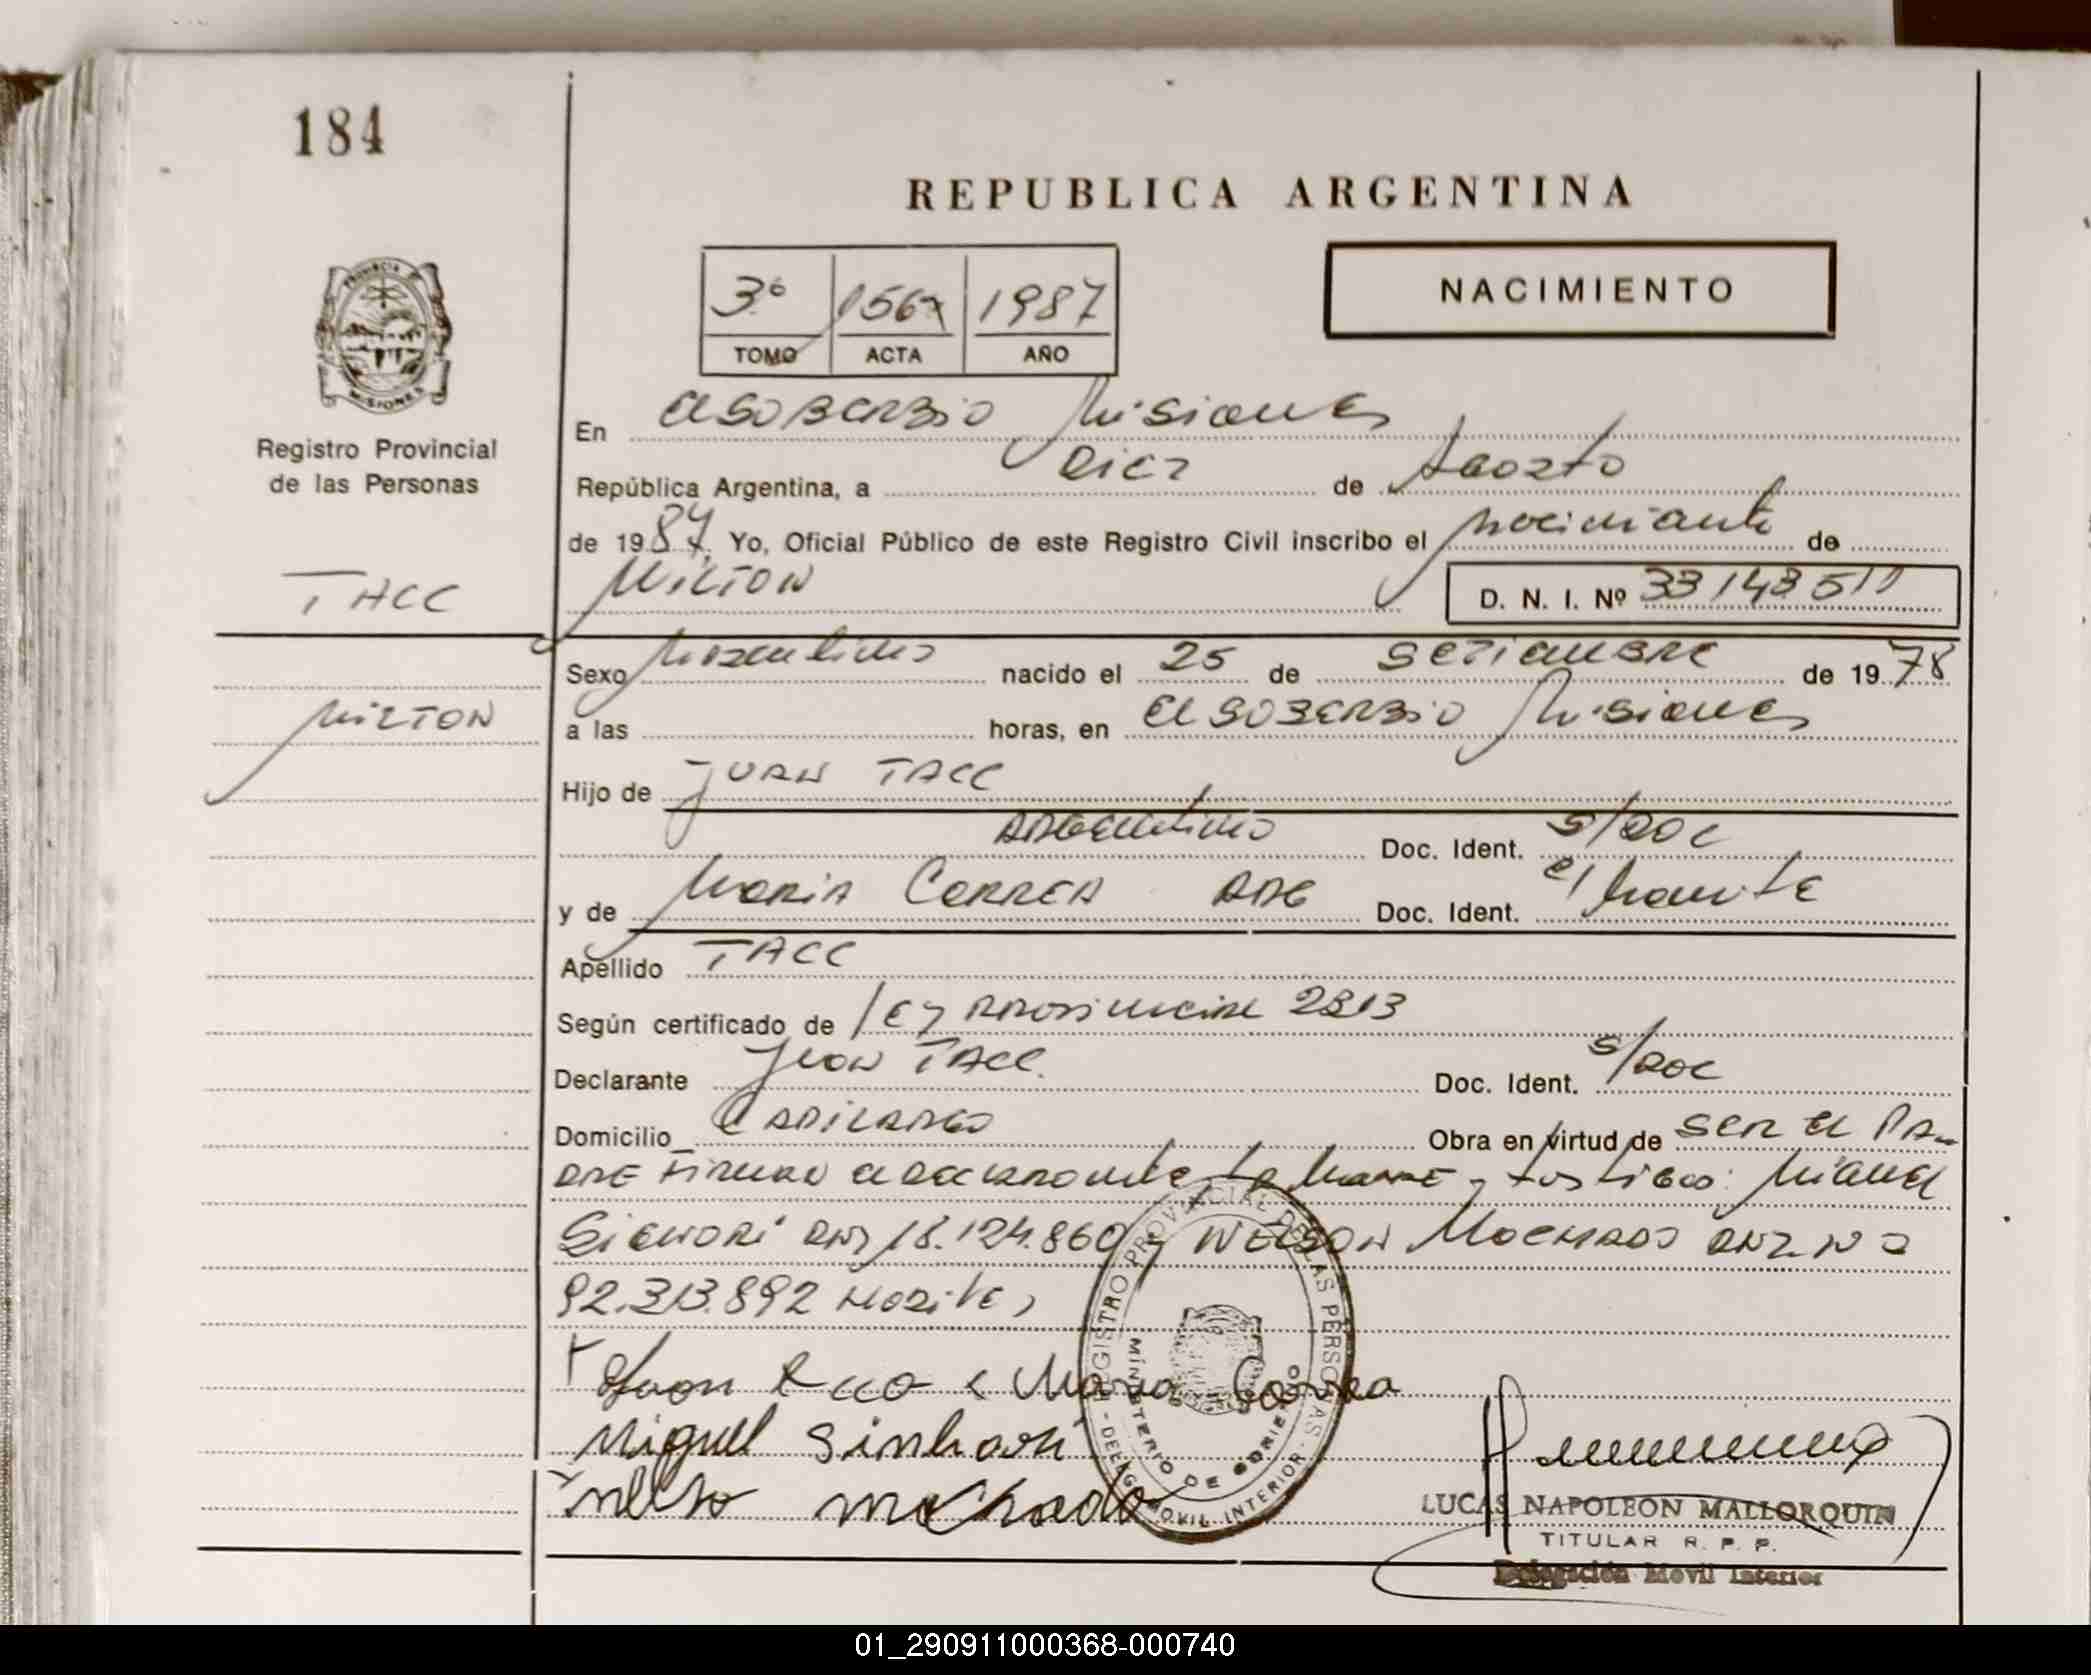 184
REPUBLICA ARGENTINA
3º 1567 1987
TOMO ACTA AÑO
NACIMIENTO
PROVINCIA DE MISIONES
Registro Provincial
de las Personas
En El SOBERBIO Misiones
República Argentina, a Diez de Agosto
de 1987. Yo, Oficial Público de este Registro Civil inscribo el nacimiento de
MILTON
D. N. I. Nº 33 143 511
TACC
Sexo Masculino nacido el 25 de SETIEMBRE de 1978
MILTON
a las horas, en El SOBERBIO Misiones
Hijo de JUAN TACC
ARGentino Doc. Ident. S/DOC
y de MARIA CORREA ARG Doc. Ident. El Monte
Apellido TACC
Según certificado de ley Provincial 2813
Declarante Juan TACC. Doc. Ident. S/DOC
Domicilio Obra en virtud de SER El PA-
DRE Firman el declarante la Madre y testigos: Miguel
DNI 18.124.860 y NELSON Machado DNI Nº
92.313.892
Juan Maria Correa
Miguel
machado
REGISTRO PROVINCIAL DE LAS PERSONAS - DELEG. MOVIL INTERIOR -
MINISTERIO DE GOBIERNO
LUCAS NAPOLEON MALLORQUIN
TITULAR R. P. P.
Delegación Movil Interior
01_290911000368-000740